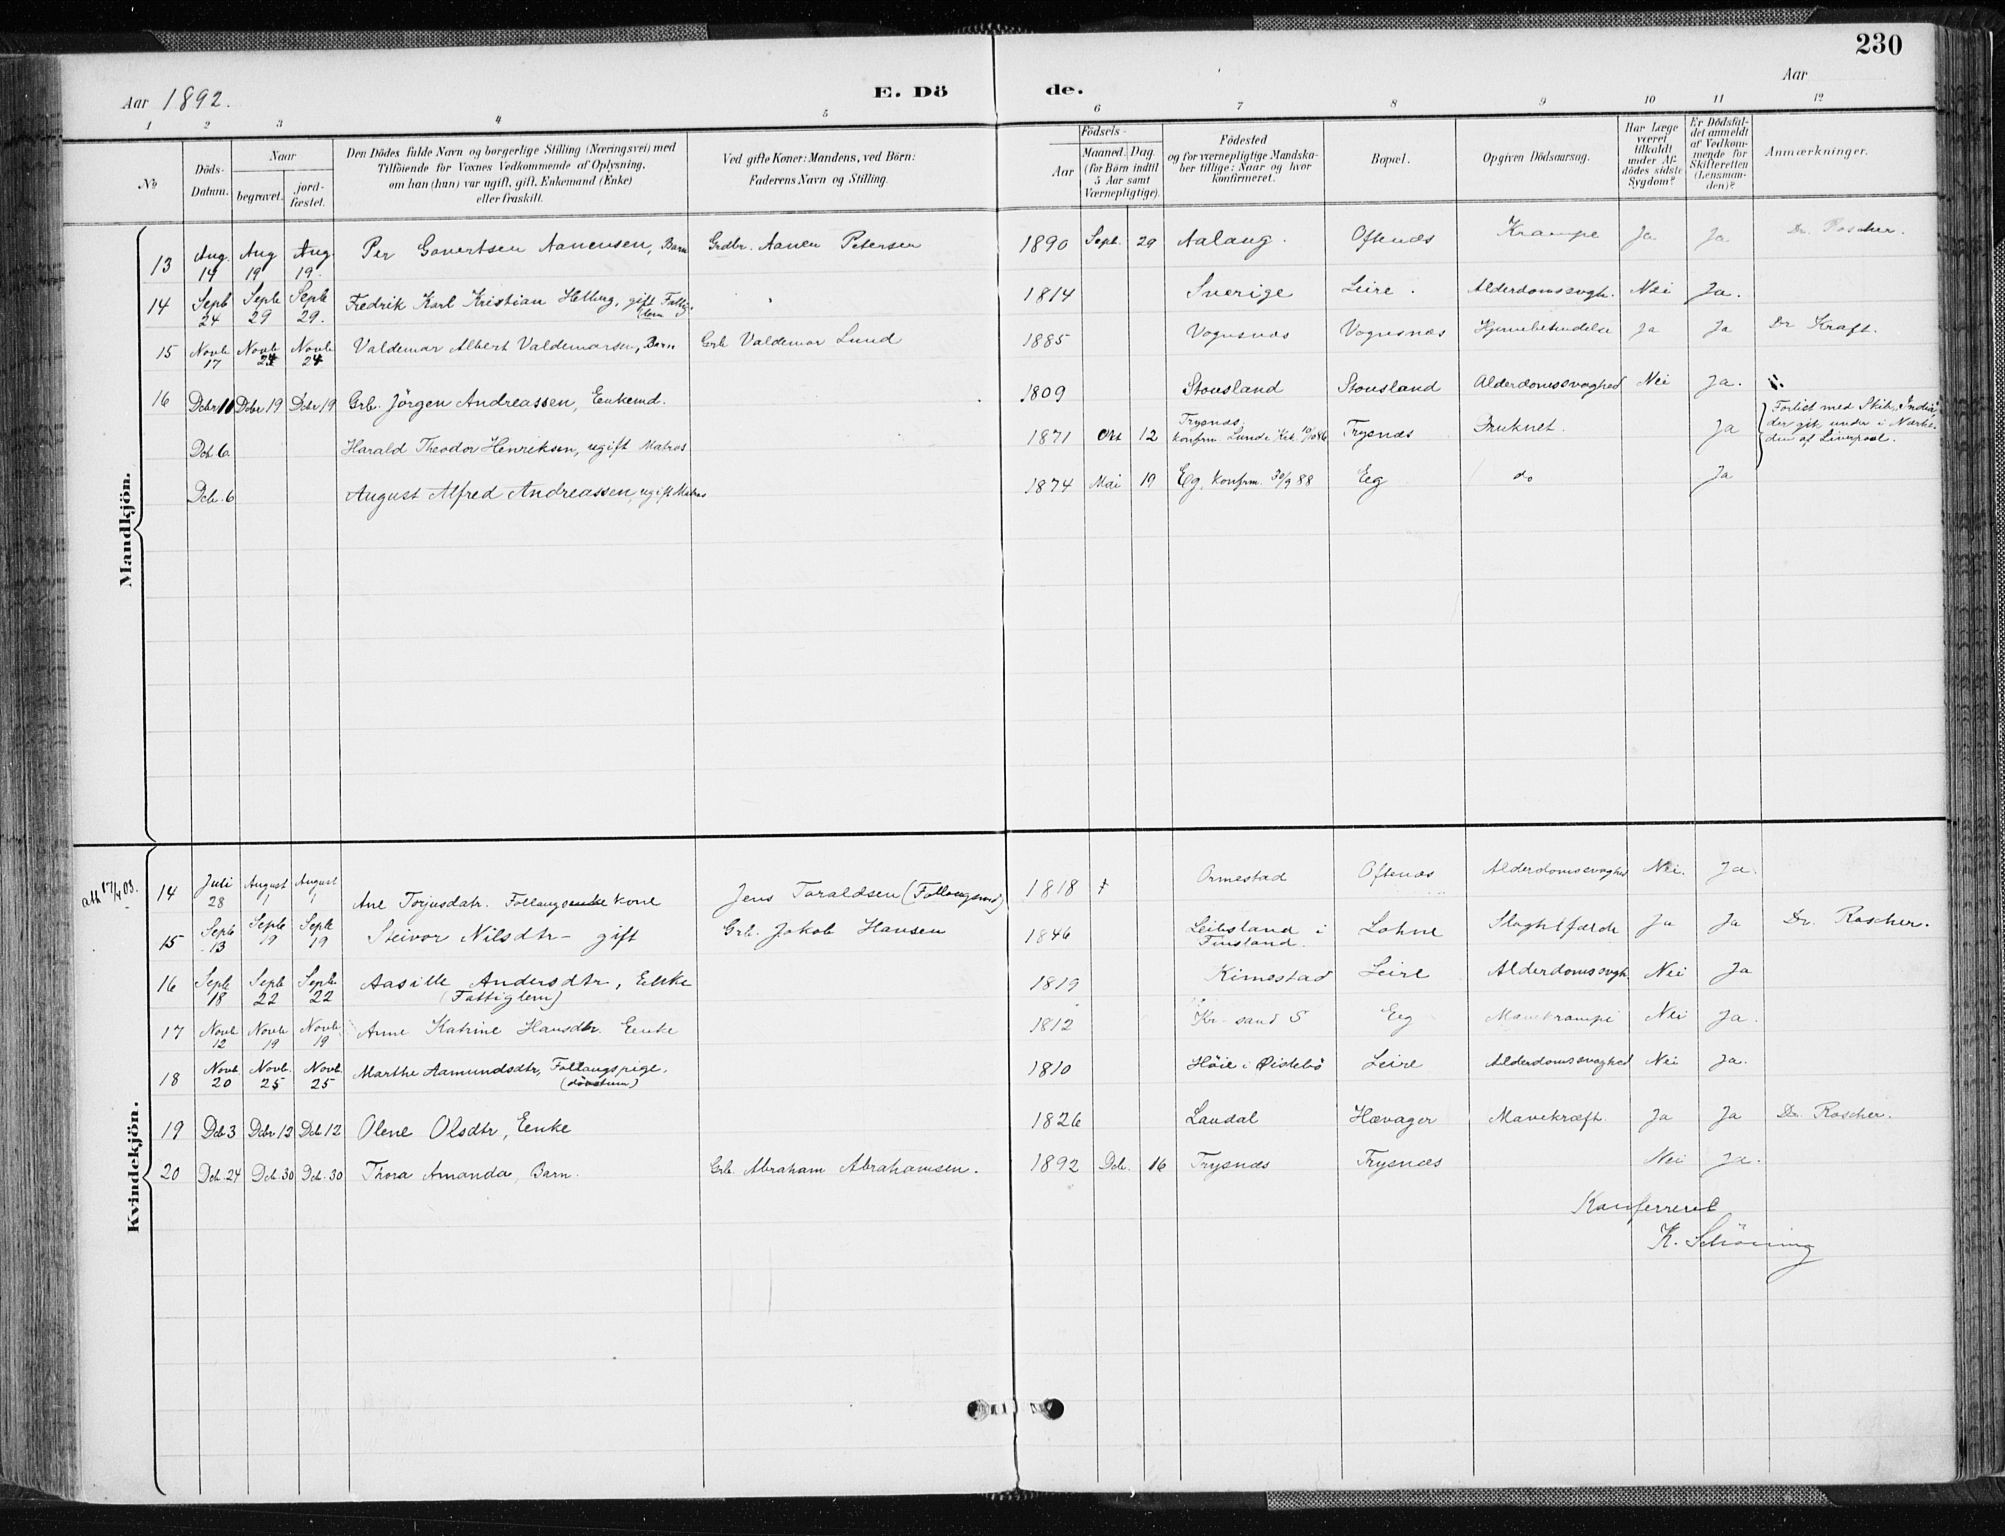 230
Aar 1892.
E. Dö de.
Aar
1 2 3 4 5 6 7 8 9 10 11 12
No
Döds-Datum.
Naar
begravet.
jord-fæstet.
Den Dödes fulde Navn og borgerlige Stilling (Næringsvei) med
Tilföiende for Voxnes Vedkommende af Oplysning,
om han (hun) var ugift, gift, Enkemand (Enke)
eller fraskilt.
Ved gifte Koner: Mandens, ved Börn:
Faderens Navn og Stilling.
Födsels-
Aar
Maaned. Dag.
(for Börn indtil
5 Aar samt
Værnepligtige).
Födested
og for værnepligtige Mandska-
ber tillige: Naar og hvor
konfirmeret.
Bopæl.
Opgiven Dödsaarsag.
Har Læge
været
tilkaldt
under Af-
dödes sidste
Sygdom?
Er Dödsfal-
det anmeldt
af Vedkom-
mende for
Skifteretten
(Lensman-
den)?
Anmærkninger.
Mandkjön.
13 Aug. 14 Aug 19 Aug. 19. Per Govertsen Aanensen, Barn Grdbr. Aanen Petersen 1890 Sept. 29 Aalaug. Oftenæs Krampe Ja Ja Dr. Roscher.
14 Septb 24 Septb 29 Septb 29. Fredrik Karl Kristian Helberg, gift Fattig-
lem 1814 Sverige Leire. Alderdomssvagh. Nei Ja.
15 Novb 17 Novb 24 Novb 24 Valdemar Albert Valdemarsen, Barn Grb. Valdemar Lund 1885 Vognsnæs Vognsnæs Hjernebetændelse Ja Ja Dr Kraft.
16 Dcbr 10 Dcbr 19 Dcbr 19 Grb. Jörgen Andreassen, Enkemd. 1809 Stousland Stousland Alderdomssvaghed Nei Ja.
Dcb 6. Harald Theodor Henriksen, ugift Matros 1871 Okt 12 Trysnæs,
konfrm. Lunde Kirk. 10/10 86 Trysnæs Druknet. Ja Forlist med Skib „India“,
der gik under i Nærhe-
den af Liverpool.
Dcb. 6 August Alfred Andreassen, ugift Matros 1874 Mai 19 Eg, konfrm. 30/9 88 Eeg do Ja
Kvindekjön.
14 Juli 28 August 1 August 1 Ane Torjusdatr. Follaugsenke kone Jens Taraldsen (Follaugsmd) 1818 Ormestad Oftenæs Alderdomssvaghed Nei. Ja.
15 Septb 13 Septb 19 Septb 19 Steivor Nilsdtr – gift Grb. Jakob Hansen 1846 Leibsland i
Finsland. Lohne Slaghtfærde Ja Ja Dr. Roscher.
16 Septb 18 Septb 22 Septb 22 Aasille Andersdtr, Enke
(Fattiglem) 1819 Kimestad Leire Alderdomssvgh. Nei Ja
17 Novb 12 Novb 19 Novb 19 Anne Katrine Hansdtr. Enke 1812 Kr-sand S Eeg Mavekrampe Nei Ja.
18 Novb 20 Novb. 25 Novb. 25 Marthe Aamundsdtr, Follaugspige.
(dövstum) 1810 Höie i Øislebö Leire Alderdomssvaghed Nei Ja.
19 Dcb 3 Dcbr 12 Dcb 12 Olene Olsdtr, Enke 1826 Laudal Hævager Mavekræft. Ja Ja Dr. Roscher.
20 Dcb. 24 Dcb. 30 Dcb. 30 Thora Amanda, Barn. Grb. Abraham Abrahamsen. 1892 Dcb. 16 Trysnæs Trysnæs Nei Ja.
Konfereret
K. Schöning